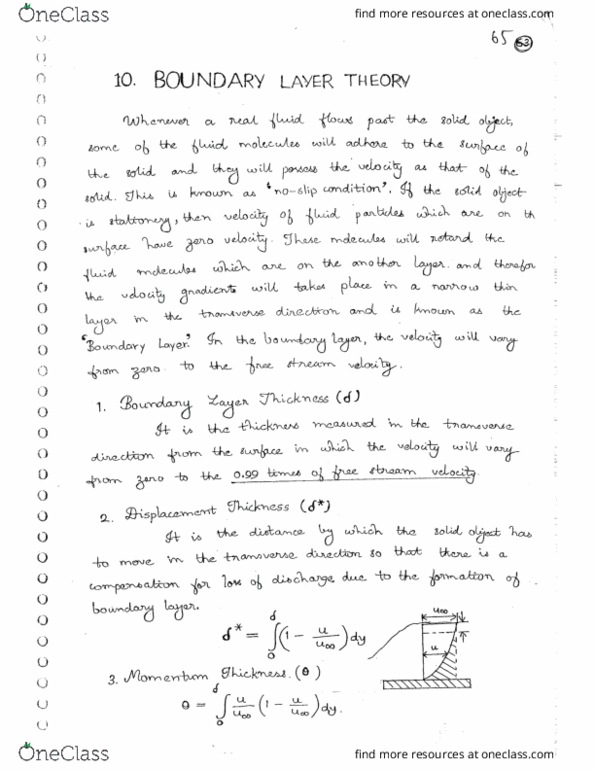 OneClass
find more resources at oneclass.com
65 53
10. BOUNDARY LAYER THEORY
Whenever a real fluid flows past the solid object,
some of the fluid molecules will adhere to the surface of
the solid and they will possess the velocity as that of the
solid. This is known as "no-slip condition". If the solid object
is stationery, then velocity of fluid particles which are on th
surface have zero velocity. These molecules will retard the
fluid molecules which are on the another layer. and therefor
the velocity gradients will takes place in a narrow thin
layer in the transverse direction and is known as the
"Boundary Layer". In the boundary layer, the velocity will vary
from zero to the free stream velocity.
1. Boundary Layer Thickness (d)
It is the thickness measured in the transverse
direction from the surface in which the velocity will vary
from zero to the 0.99 times of free stream velocity.
2. Displacement Thickness (d*)
It is the distance by which the solid object has
to move in the transverse direction so that there is a
compensation for loss of discharge due to the formation of
boundary layer.
d* = ∫₀ᵈ (1 - u/u∞) dy
u∞
u
3. Momentum Thickness. (θ)
θ = ∫₀ᵈ u/u∞ (1 - u/u∞) dy.
OneClass
find more resources at oneclass.com